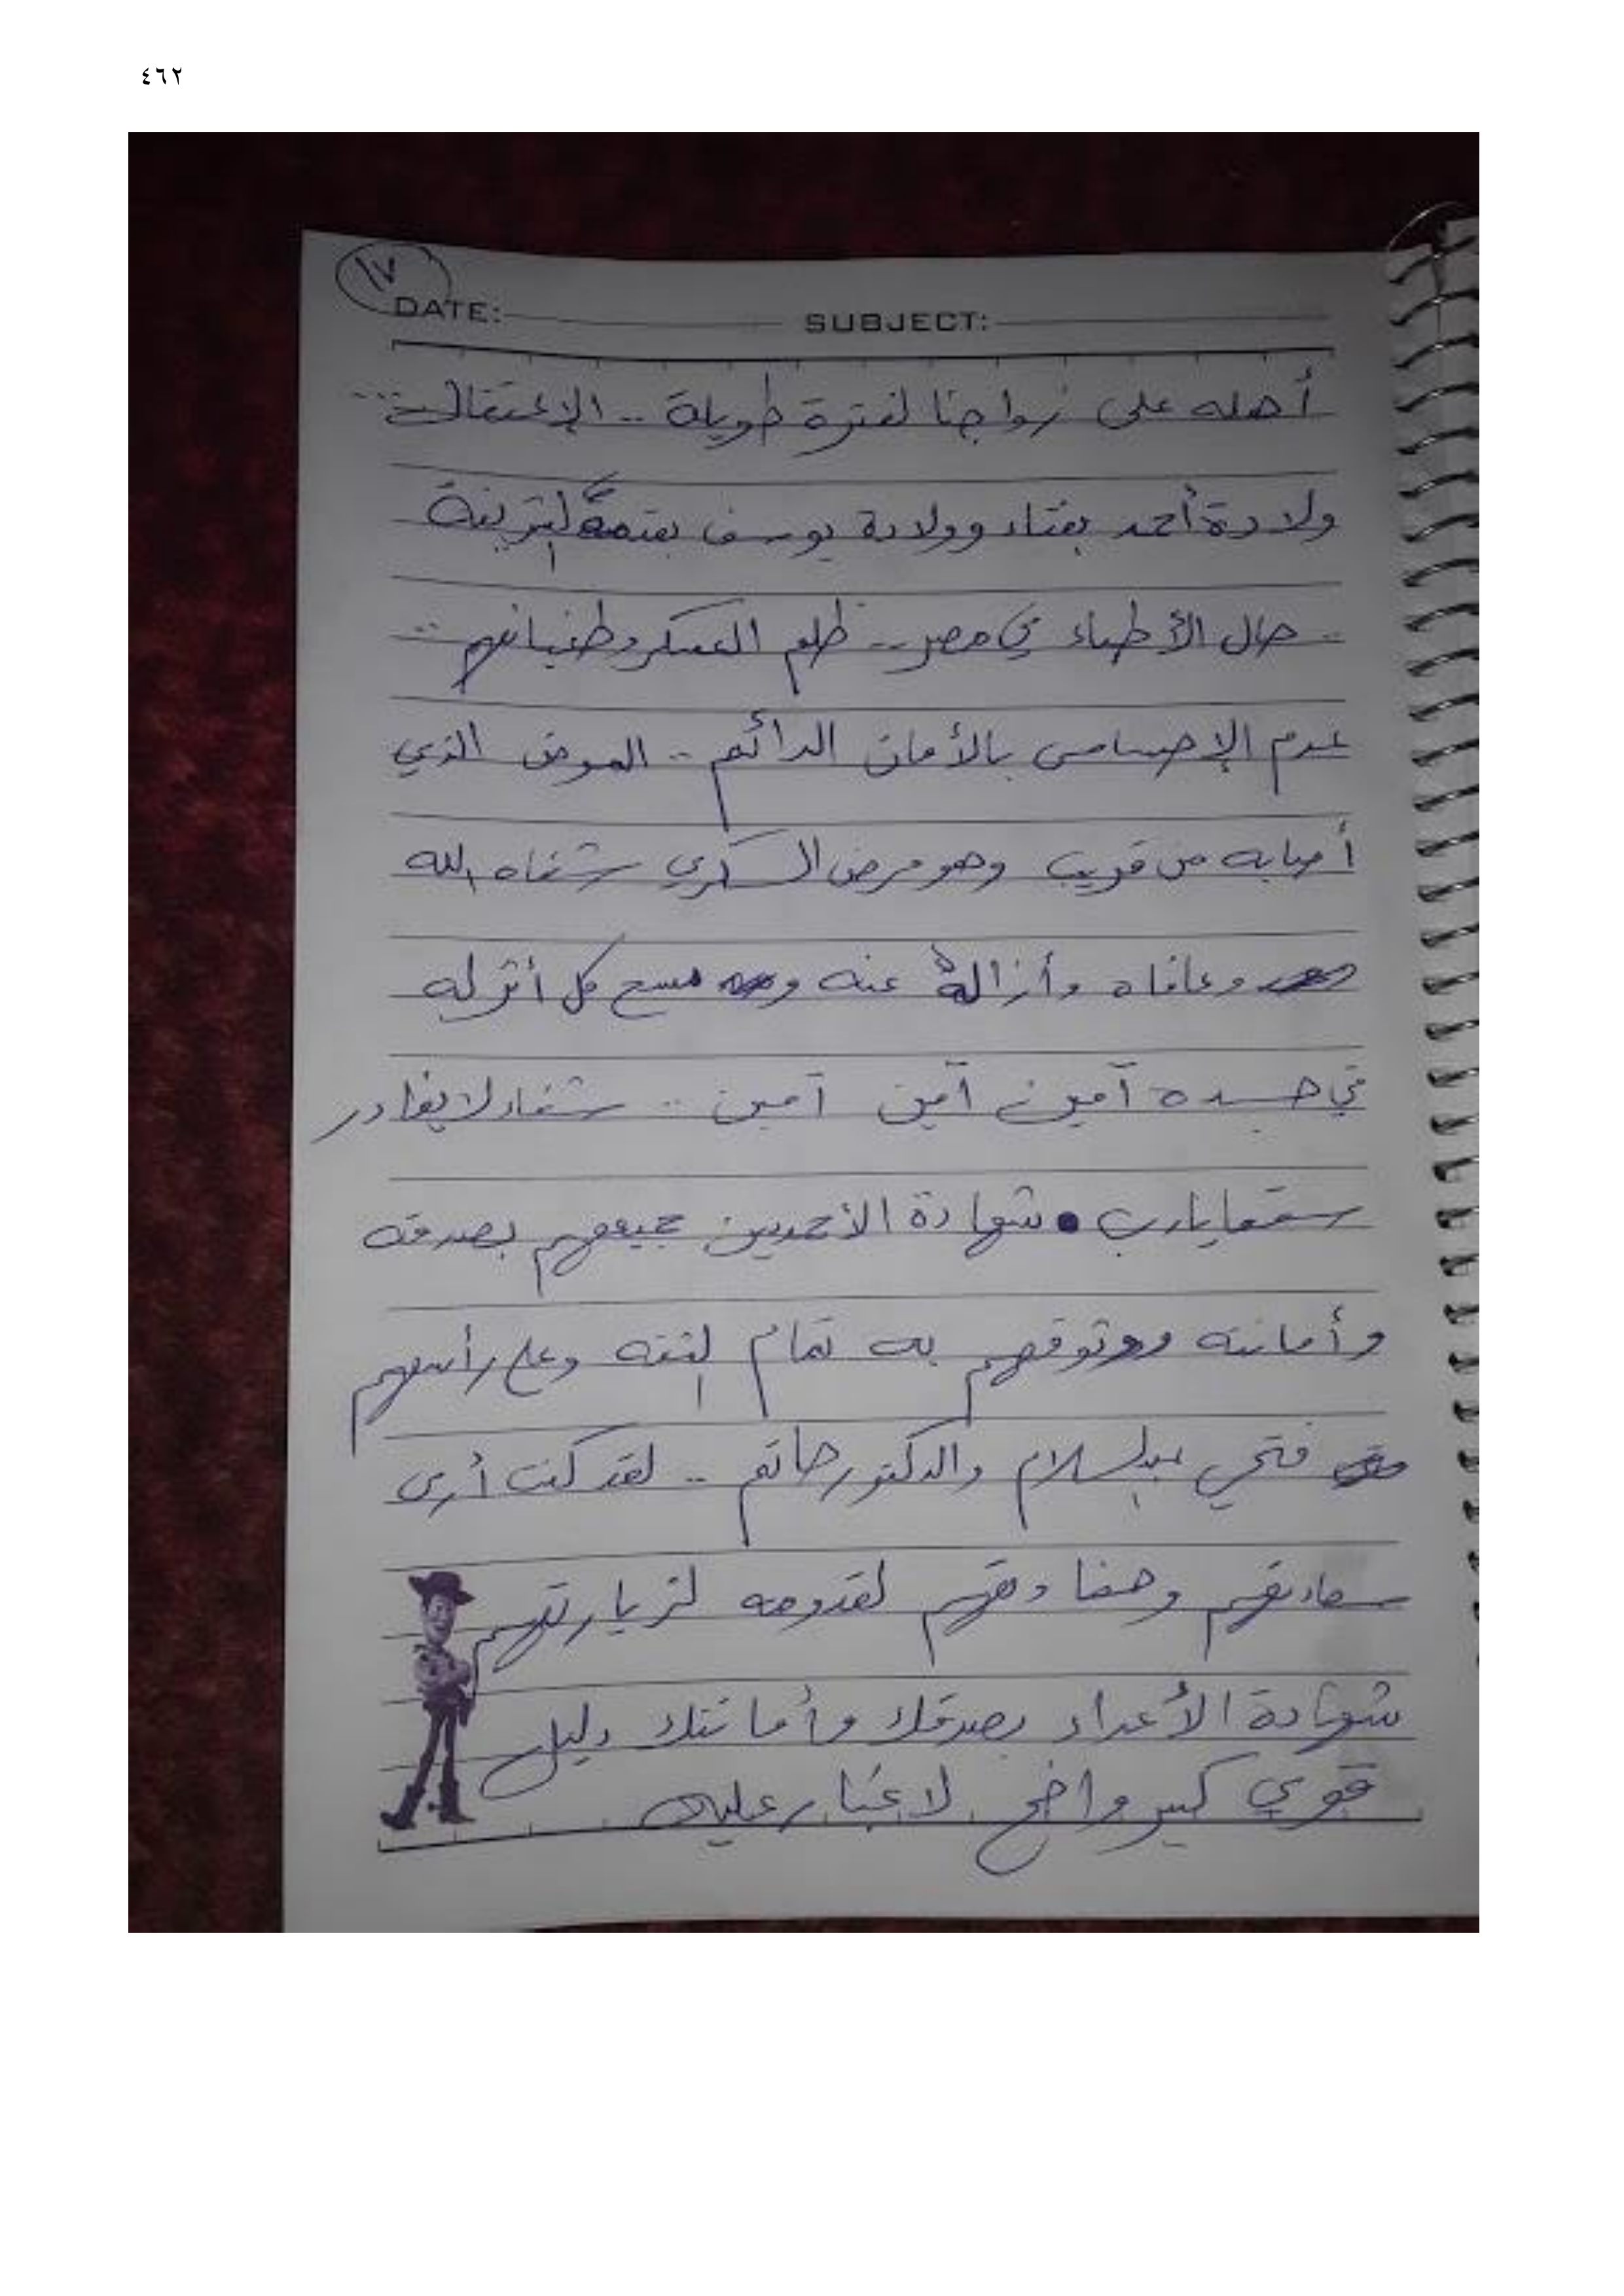 ٤٦٢
١٧
DATE: SUBJECT:
أهله على زواجنا لفترة طويلة .. الإعتقالات ...
ولادة أحمد بعناء وولادة يوسف
.. حال الأطباء في مصر .. ظلم العسكر وطغيانهم ..
عدم الإحساس بالأمان الدائم .. المرض الذي
أصابه من قريب وهو مرض السكري شفاه الله
وعافاه وأزاله عنه ومسح كل أثر له
في جسده آمين آمين آمين .. شفاء لا يغادر
سقما يارب . شهادة الأحمديين جميعهم بصدقه
وأمانته ووثوقهم به تمام الثقة وعلى رأسهم
فتحي عبدالسلام والدكتور حاتم .. لقد كنت أرى
سعادتهم وحفاوتهم لقدومه لزيارتهم
شهادة الأعداء بصدقك وأمانتك دليل
قوي كبير واضح لا غبار عليه